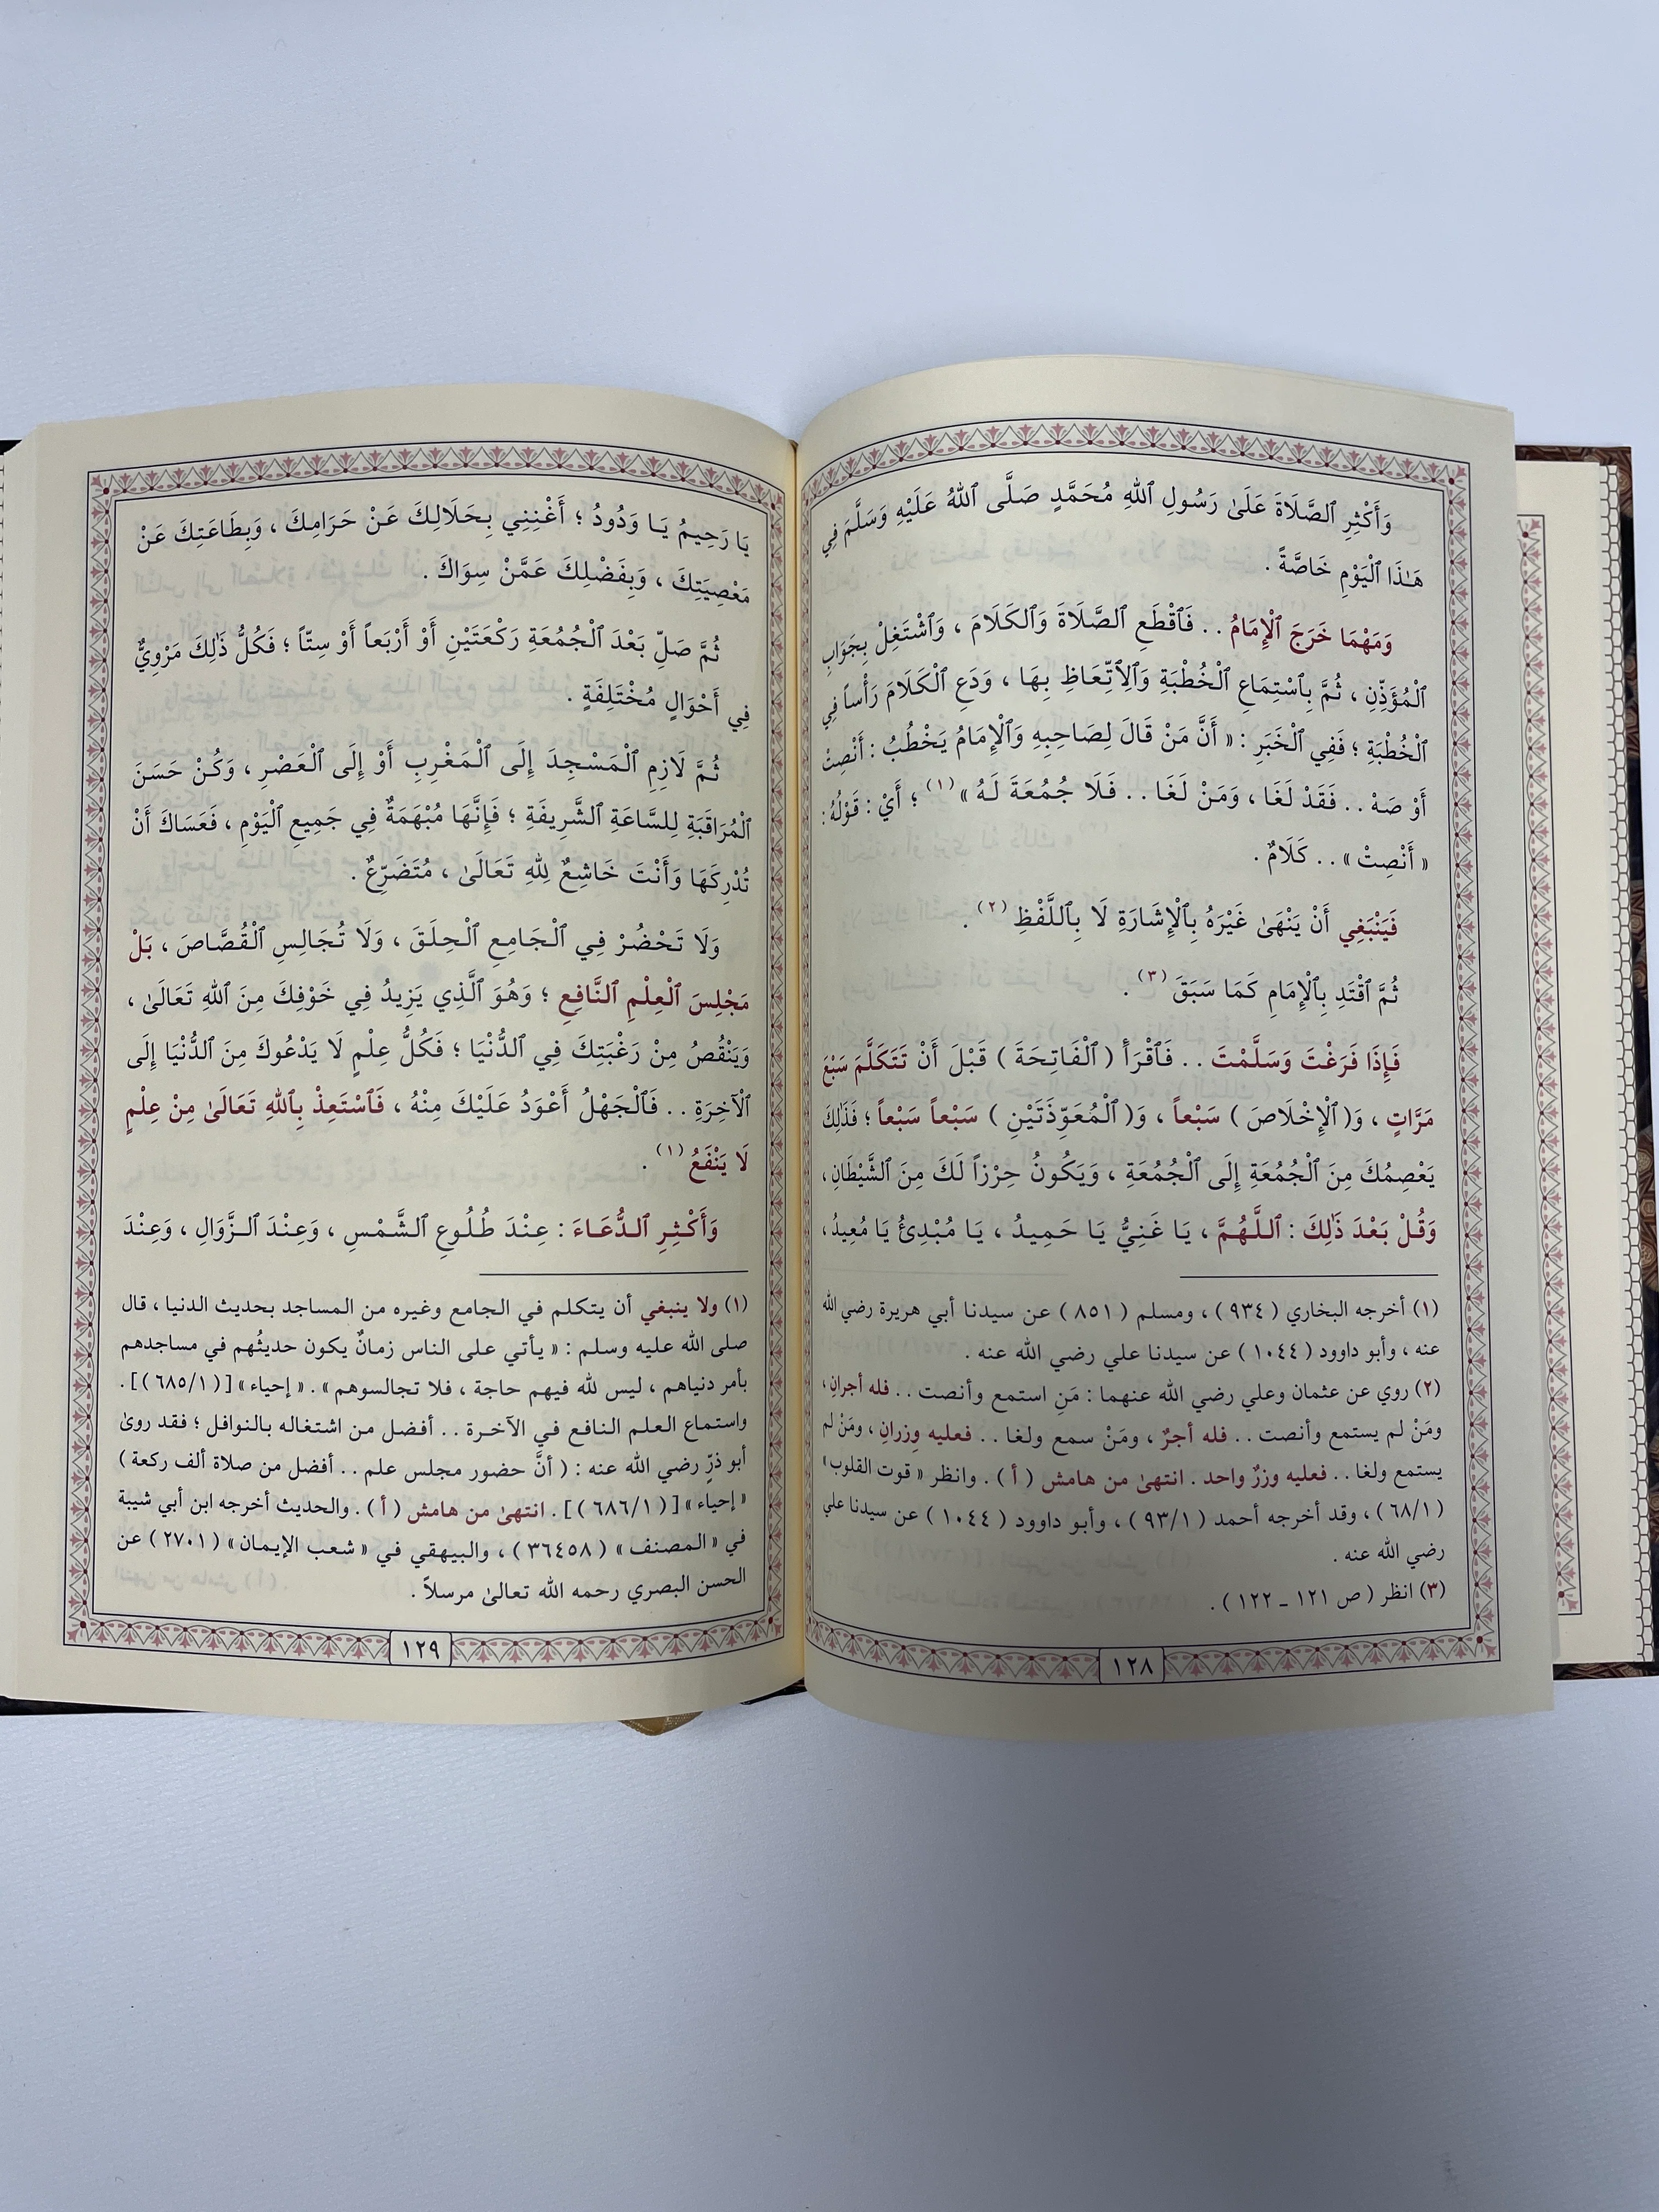 وَأَكْثِرِ ٱلصَّلَاةَ عَلَىٰ رَسُولِ ٱللهِ مُحَمَّدٍ صَلَّى ٱللهُ عَلَيْهِ وَسَلَّمَ فِي
هَـٰذَا ٱلْيَوْمِ خَاصَّةً .
وَمَهْمَا خَرَجَ ٱلْإِمَامُ . . فَٱقْطَعِ ٱلصَّلَاةَ وَٱلْكَلَامَ ، وَٱشْتَغِلْ بِجَوَابِ
ٱلْمُؤَذِّنِ ، ثُمَّ بِٱسْتِمَاعِ ٱلْخُطْبَةِ وَٱلِٱتِّعَاظِ بِهَا ، وَدَعِ ٱلْكَلَامَ رَأْساً فِي
ٱلْخُطْبَةِ ؛ فَفِي ٱلْخَبَرِ : « أَنَّ مَنْ قَالَ لِصَاحِبِهِ وَٱلْإِمَامُ يَخْطُبُ : أَنْصِتْ
أَوْ صَهْ . . فَقَدْ لَغَا ، وَمَنْ لَغَا . . فَلَا جُمُعَةَ لَهُ » (١) ؛ أَيْ : قَوْلُهُ :
« أَنْصِتْ » . . كَلَامٌ .
فَيَنْبَغِي أَنْ يَنْهَىٰ غَيْرَهُ بِٱلْإِشَارَةِ لَا بِٱللَّفْظِ (٢) .
ثُمَّ ٱقْتَدِ بِٱلْإِمَامِ كَمَا سَبَقَ (٣) .
فَإِذَا فَرَغْتَ وَسَلَّمْتَ . . فَٱقْرَأْ ( ٱلْفَاتِحَةَ ) قَبْلَ أَنْ تَتَكَلَّمَ سَبْعَ
مَرَّاتٍ ، وَ( ٱلْإِخْلَاصَ ) سَبْعاً ، وَ( ٱلْمُعَوِّذَتَيْنِ ) سَبْعاً سَبْعاً ؛ فَذَلِكَ
يَعْصِمُكَ مِنَ ٱلْجُمُعَةِ إِلَى ٱلْجُمُعَةِ ، وَيَكُونُ حِرْزاً لَكَ مِنَ ٱلشَّيْطَانِ ،
وَقُلْ بَعْدَ ذَٰلِكَ : ٱللَّهُمَّ ، يَا غَنِيُّ يَا حَمِيدُ ، يَا مُبْدِئُ يَا مُعِيدُ ،
(١) أخرجه البخاري ( ٩٣٤ ) ، ومسلم ( ٨٥١ ) عن سيدنا أبي هريرة رضي الله
عنه ، وأبو داوود ( ١٠٤٤ ) عن سيدنا علي رضي الله عنه .
(٢) روي عن عثمان وعلي رضي الله عنهما : مَنِ استمع وأنصت . . فله أجرانِ ،
ومَنْ لم يستمع وأنصت . . فله أجرٌ ، ومَنْ سمع ولغا . . فعليه وِزرانِ ، ومَنْ لم
يستمع ولغا . . فعليه وزرٌ واحد . انتهىٰ من هامش ( أ ) . وانظر « قوت القلوب »
( ٦٨/١ ) ، وقد أخرجه أحمد ( ٩٣/١ ) ، وأبو داوود ( ١٠٤٤ ) عن سيدنا علي
رضي الله عنه .
(٣) انظر ( ص ١٢١ ـ ١٢٢ ) .
١٢٨
يَا رَحِيمُ يَا وَدُودُ ؛ أَغْنِنِي بِحَلَالِكَ عَنْ حَرَامِكَ ، وَبِطَاعَتِكَ عَنْ
مَعْصِيَتِكَ ، وَبِفَضْلِكَ عَمَّنْ سِوَاكَ .
ثُمَّ صَلِّ بَعْدَ ٱلْجُمُعَةِ رَكْعَتَيْنِ أَوْ أَرْبَعاً أَوْ سِتّاً ؛ فَكُلُّ ذَٰلِكَ مَرْوِيٌّ
فِي أَحْوَالٍ مُخْتَلِفَةٍ .
ثُمَّ لَازِمِ ٱلْمَسْجِدَ إِلَى ٱلْمَغْرِبِ أَوْ إِلَى ٱلْعَصْرِ ، وَكُنْ حَسَنَ
ٱلْمُرَاقَبَةِ لِلسَّاعَةِ ٱلشَّرِيفَةِ ؛ فَإِنَّهَا مُبْهَمَةٌ فِي جَمِيعِ ٱلْيَوْمِ ، فَعَسَاكَ أَنْ
تُدْرِكَهَا وَأَنْتَ خَاشِعٌ لِلهِ تَعَالَىٰ ، مُتَضَرِّعٌ .
وَلَا تَحْضُرْ فِي ٱلْجَامِعِ ٱلْحِلَقَ ، وَلَا تُجَالِسِ ٱلْقُصَّاصَ ، بَلْ
مَجْلِسَ ٱلْعِلْمِ ٱلنَّافِعِ ؛ وَهُوَ ٱلَّذِي يَزِيدُ فِي خَوْفِكَ مِنَ ٱللهِ تَعَالَىٰ ،
وَيَنْقُصُ مِنْ رَغْبَتِكَ فِي ٱلدُّنْيَا ؛ فَكُلُّ عِلْمٍ لَا يَدْعُوكَ مِنَ ٱلدُّنْيَا إِلَى
ٱلْآخِرَةِ . . فَٱلْجَهْلُ أَعْوَدُ عَلَيْكَ مِنْهُ ، فَٱسْتَعِذْ بِٱللهِ تَعَالَىٰ مِنْ عِلْمٍ
لَا يَنْفَعُ (١) .
وَأَكْثِرِ ٱلدُّعَاءَ : عِنْدَ طُلُوعِ ٱلشَّمْسِ ، وَعِنْدَ ٱلزَّوَالِ ، وَعِنْدَ
(١) ولا ينبغي أن يتكلم في الجامع وغيره من المساجد بحديث الدنيا ، قال
صلى الله عليه وسلم : « يأتي على الناس زمانٌ يكون حديثُهم في مساجدهم
بأمر دنياهم ، ليس لله فيهم حاجة ، فلا تجالسوهم » . « إحياء » [ ( ٦٨٥/١ ) ] .
واستماع العلم النافع في الآخرة . . أفضل من اشتغاله بالنوافل ؛ فقد روىٰ
أبو ذرٍّ رضي الله عنه : ( أنَّ حضور مجلس علم . . أفضل من صلاة ألف ركعة )
« إحياء » [ ( ٦٨٦/١ ) ] . انتهىٰ من هامش ( أ ) . والحديث أخرجه ابن أبي شيبة
في « المصنف » ( ٣٦٤٥٨ ) ، والبيهقي في « شعب الإيمان » ( ٢٧٠١ ) عن
الحسن البصري رحمه الله تعالىٰ مرسلاً .
١٢٩